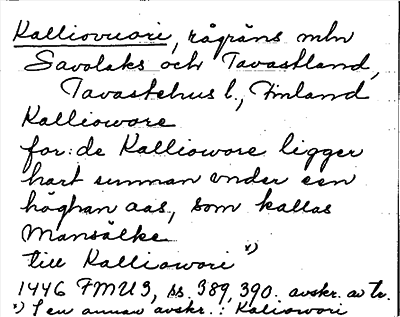 Kalliovuori, rågräns mln
Savolaks och Tavastland,
Tavastehus l., Finland
Kalliowore
for: de Kalliowore ligger
hart sunnan vnder een
höghan aas, som kallas
Mansälke
till Kalliawori x)
1446 FMU 3, ss 389, 390. avskr. av tr.
x) I en annan avskr.: Kaliowori